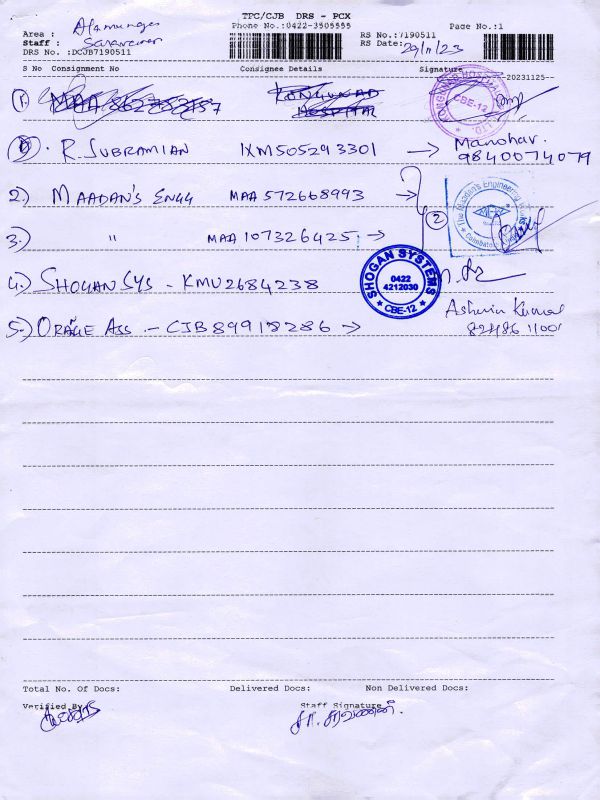 TPC/CJB DRS - PCX
Phone No.:0422-3505555
Page No.:1
Area : Alamunges
Staff : Saravanan
RS No.:7190511
DRS No. :DCJB7190511
RS Date: 29/11/23
S No Consignment No Consignee Details Signature
20231125
1. MAA 862783157 KONGUNAD
HOSPITAL
KONGUNAD HOSPITAL LTD. CBE-12
1). R. SUBRAMIAN IXM505293301 → Manohar.
9840074079
2.) MAADAN'S ENGG MAA 572668993 →
2
The Maadan's Engineering Works Coimbatore
3.) " MAA 107326425 →
4.) SHOGAN SYS - KMU2684238
SHOGAN SYSTEMS
0422
4212030
CBE-12
5.) ORANGE ASS - CJB89918286 → Ashwin Kumar
Total No. Of Docs: Delivered Docs: Non Delivered Docs:
Verified By Staff Signature
சா. சரவணன்.